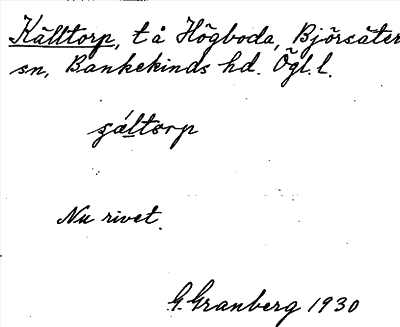 Källtorp, t å Högboda, Björsäter
sn, Bankekinds hd. Ögl. l.
gáltorp
Nu rivet.
G. Granberg 1930